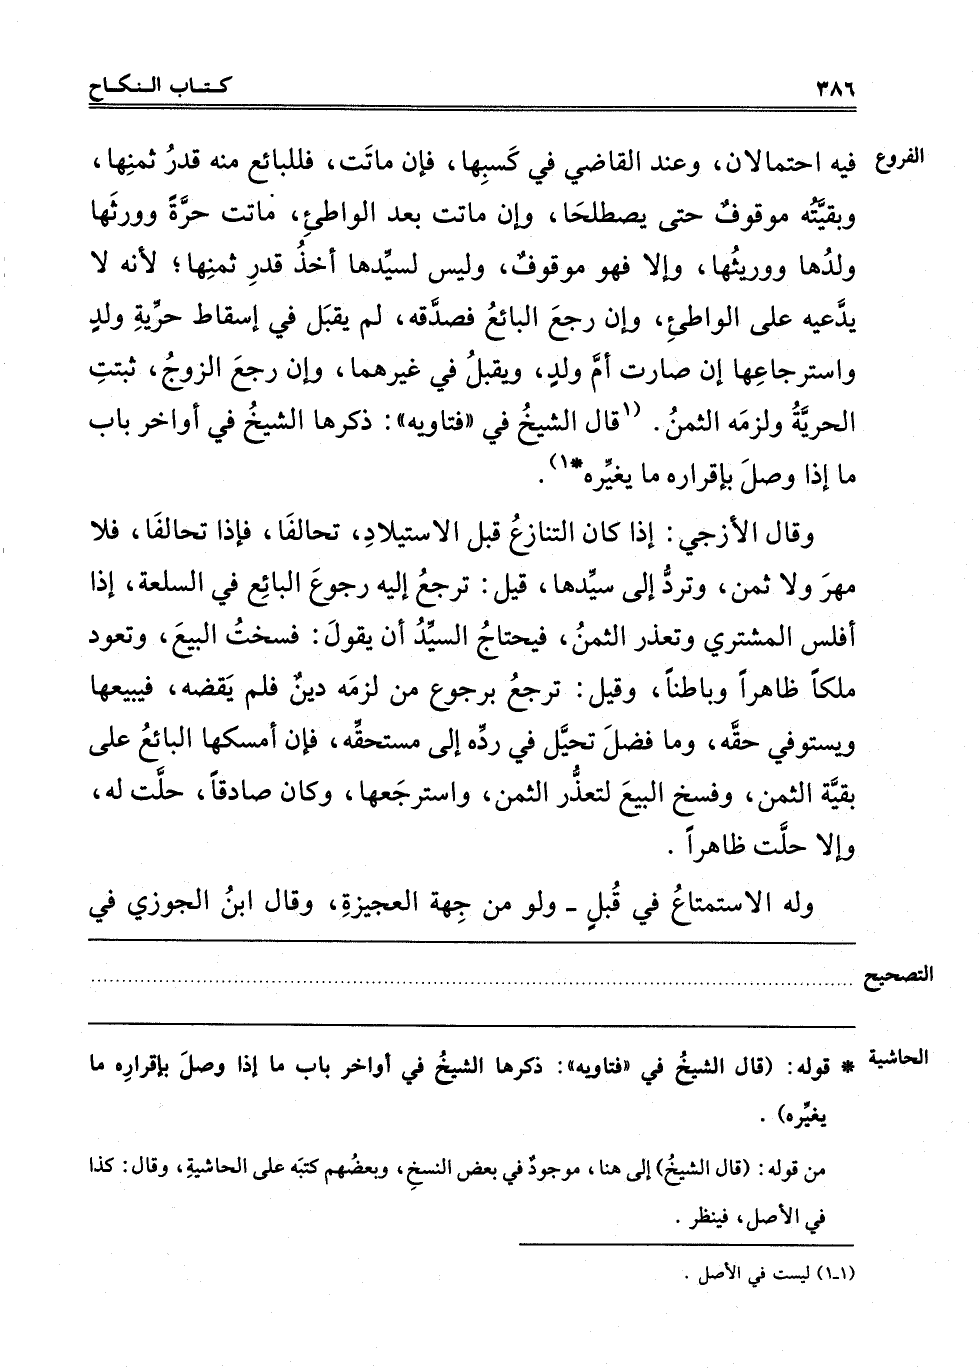 ٣٨٦ كتاب النكاح
الفروع فيه احتمالان، وعند القاضي في كَسبِها، فإن ماتَت، فللبائع منه قدرُ ثمنِها،
وبقيَّتُه موقوفٌ حتى يصطلحَا، وإن ماتت بعد الواطئِ، ماتت حرَّةً وورثَها
ولدُها ووريثُها، وإلا فهو موقوفٌ، وليس لسيِّدها أخذُ قدرِ ثمنِها؛ لأنه لا
يدَّعيه على الواطئِ، وإن رجعَ البائعُ فصدَّقه، لم يقبَل في إسقاط حرِّيةِ ولدٍ
واسترجاعِها إن صارت أمَّ ولدٍ، ويقبلُ في غيرهما، وإن رجعَ الزوجُ، ثبتتِ
الحريَّةُ ولزمَه الثمنُ. (١قال الشيخُ في «فتاويه»: ذكرها الشيخُ في أواخر باب
ما إذا وصلَ بإقراره ما يغيِّره*١).
وقال الأزجي: إذا كان التنازعُ قبل الاستيلادِ، تحالفَا، فإذا تحالفَا، فلا
مهرَ ولا ثمن، وتردُّ إلى سيِّدها، قيل: ترجعُ إليه رجوعَ البائعِ في السلعة، إذا
أفلس المشتري وتعذر الثمنُ، فيحتاجُ السيِّدُ أن يقولَ: فسختُ البيعَ، وتعود
ملكاً ظاهراً وباطناً، وقيل: ترجعُ برجوع من لزمَه دينٌ فلم يَقضه، فيبيعها
ويستوفي حقَّه، وما فضلَ تحيَّل في ردِّه إلى مستحقِّه، فإن أمسكها البائعُ على
بقيَّة الثمن، وفسخ البيعَ لتعذُّر الثمن، واسترجَعها، وكان صادقاً، حلَّت له،
وإلا حلَّت ظاهراً.
وله الاستمتاعُ في قُبلٍ ـ ولو من جِهة العجيزةِ، وقال ابنُ الجوزي في
التصحيح ................................................................
الحاشية * قوله: (قال الشيخُ في «فتاويه»: ذكرها الشيخُ في أواخر باب ما إذا وصلَ بإقرارِه ما
يغيِّره).
من قوله: (قال الشيخُ) إلى هنا، موجودٌ في بعض النسخِ، وبعضُهم كتبَه على الحاشيةِ، وقال: كذا
في الأصل، فينظر.
(١-١) ليست في الأصل.